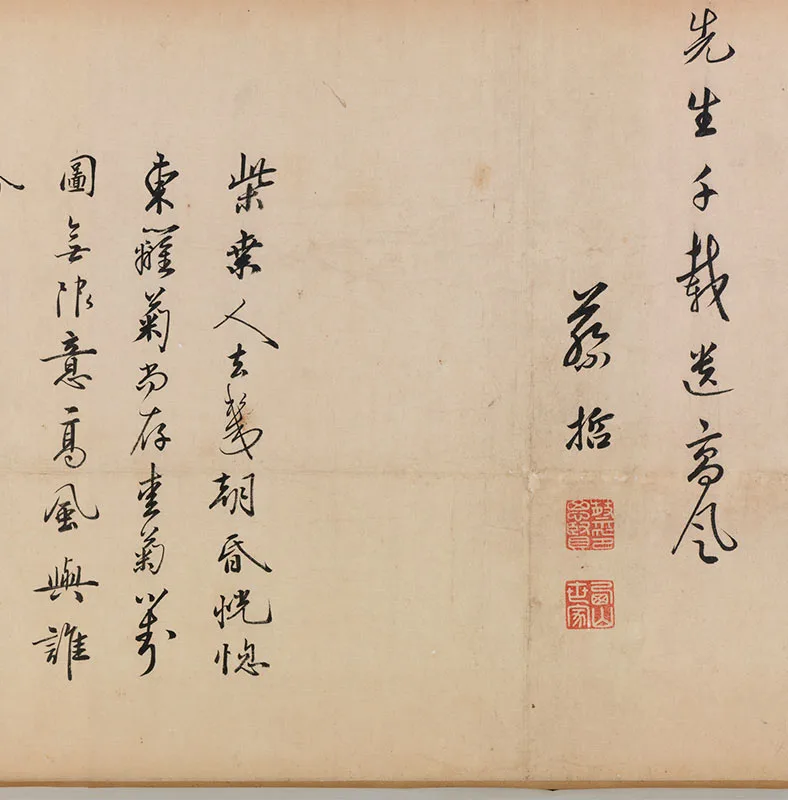 先生千載遺高風
蔡哲
柴桑人去幾朝昏恍惚
東籬菊尚存菊對
圖無限意高風與誰